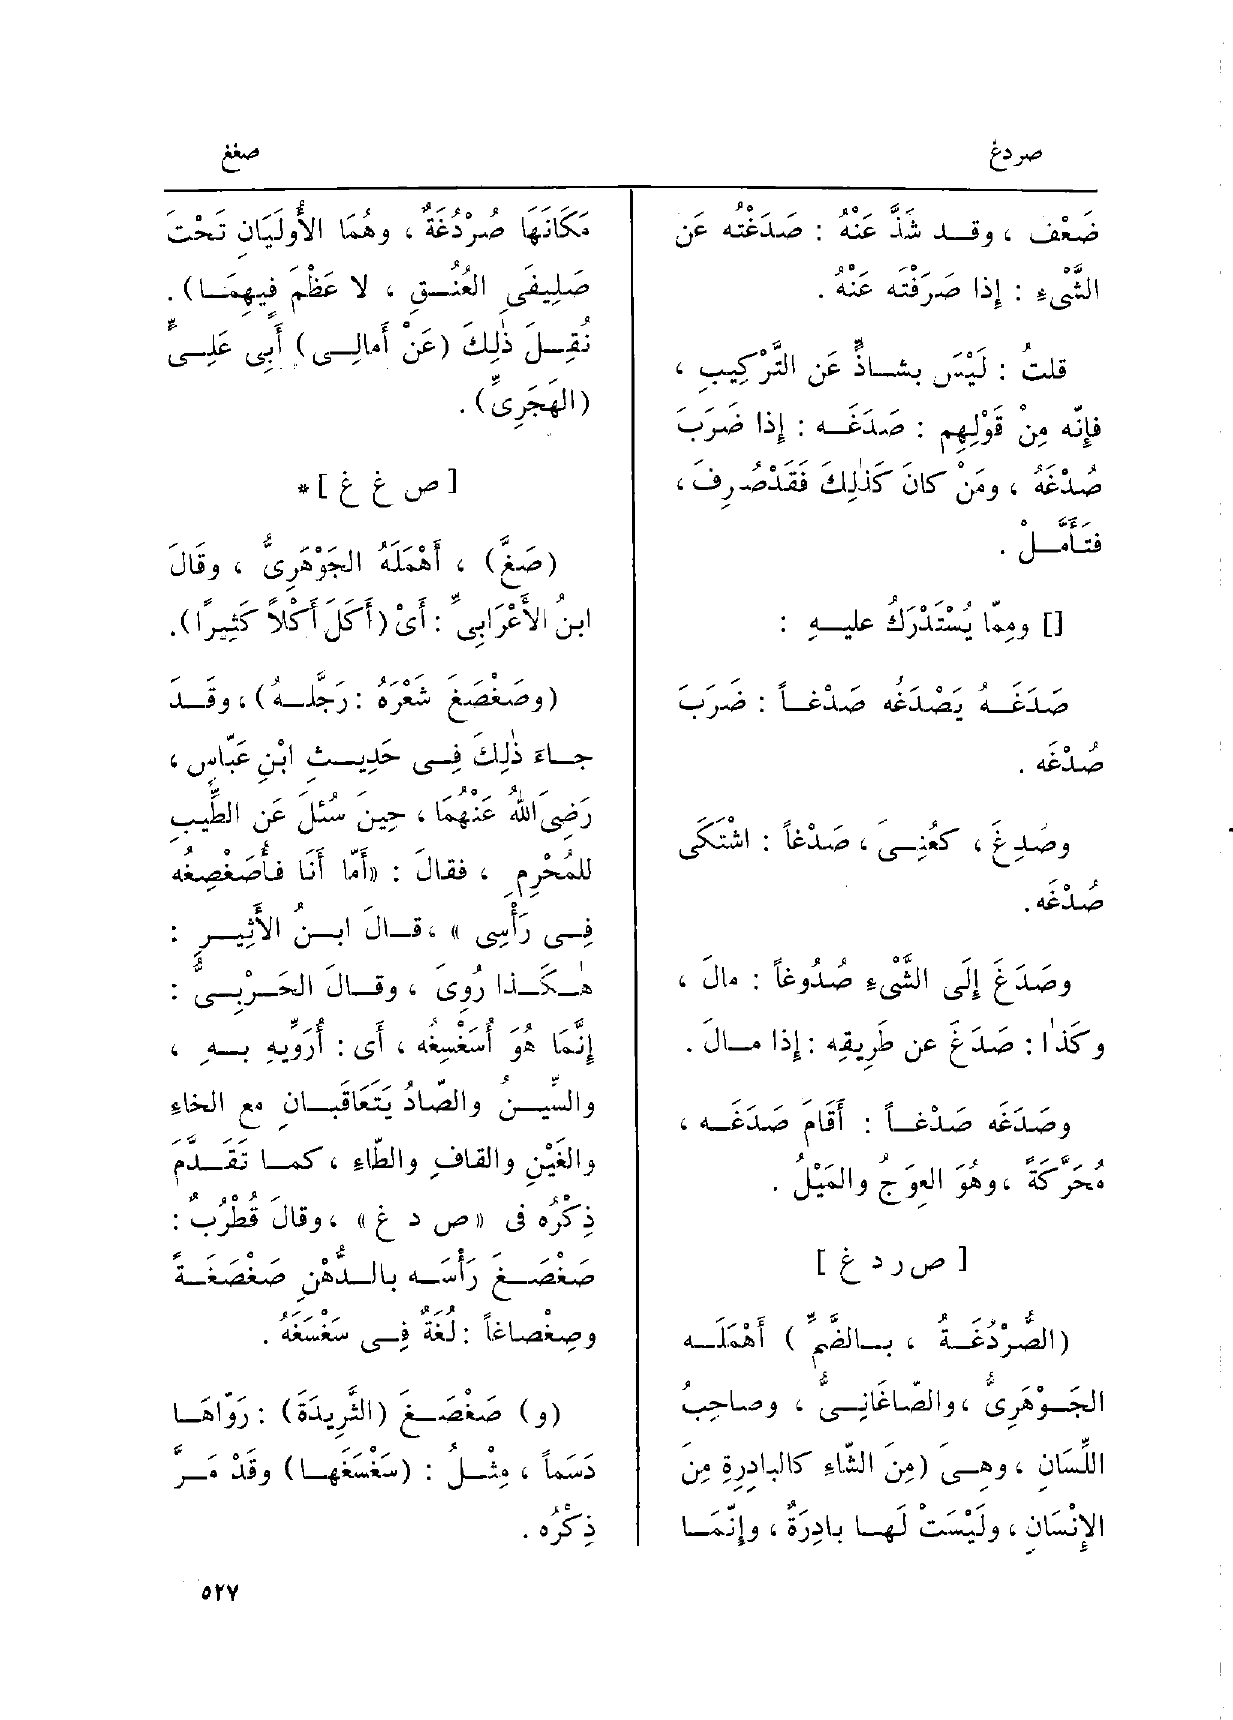 صردغ
صغغ
ضَعْف ، وقد شَذَّ عَنْهُ : صَدَغْتُه عن
الشَّيْءِ : إِذا صَرَفْتَه عَنْهُ .
قلتُ : لَيْسَ بشاذٍّ عَن التَّرْكِيبِ ،
فإِنّه مِنْ قَوْلِهِم : صَدَغَه : إِذا ضَرَبَ
صُدْغَهُ ، ومَنْ كانَ كَذٰلِكَ فَقَدْ صُرِفَ ،
فتَأَمَّلْ .
[] ومِمّا يُسْتَدْرَكُ عليهِ :
صَدَغَهُ يَصْدَغُه صَدْغاً : ضَرَبَ
صُدْغَه .
وصُدِغَ ، كعُنِىَ ، صَدْغاً : اشْتَكَى
صُدْغَه .
وصَدَغَ إِلَى الشَّىْءِ صُدُوغاً : مالَ ،
وكَذٰا : صَدَغَ عن طَرِيقِه : إِذا مالَ .
وصَدَغَه صَدْغاً : أَقَامَ صَدَغَه ،
مُحَرَّكَةً ، وهُوَ العِوَجُ والمَيْلُ .
[ ص ر د غ ]
(الصُّرْدُغَةُ ، بالضَّمِّ ) أَهْمَلَه
الجَوْهَرِىُّ ، والصّاغَانِىُّ ، وصاحِبُ
اللِّسَانِ ، وهىَ (مِنَ الشّاءِ كالبادِرةِ مِنَ
الإِنْسَانِ ، ولَيْسَتْ لَها بادِرَةٌ ، وإِنَّمَا
مَكَانَهَا صُرْدُغَةٌ ، وهُمَا الأُولَيَانِ تَحْتَ
صَلِيفَىِ العُنُقِ ، لا عَظْمَ فِيهِمَا) .
نُقِلَ ذٰلِكَ (عَنْ أَمالِى) أَبِى عَلِىٍّ
(الهَجَرِىِّ) .
[ ص غ غ ] *
(صَغَّ) ، أَهْمَلَهُ الجَوْهَرِىُّ ، وقالَ
ابنُ الأَعْرَابِىِّ : أَىْ (أَكَلَ أَكْلاً كَثِيرًا).
(وصَغْصَغَ شَعْرَهُ : رَجَّلَهُ) ، وقَدَ
جاءَ ذٰلِكَ فِى حَدِيثِ ابْنِ عَبّاسٍ ،
رَضِىَ اللهُ عَنْهُمَا ، حِينَ سُئلَ عَنِ الطِّيبِ
للمُحْرِمِ ، فقالَ : «أَمّا أَنَا فأُصَغْصِغُه
فِى رَأْسِى » ، قالَ ابنُ الأَثِيرِ :
هٰكَذا رُوِىَ ، وقالَ الحَرْبِىُّ :
إِنَّمَا هُوَ أُسَغْسِغُه ، أَى : أُرَوِّيهِ بِهِ ،
والسِّينُ والصّادُ يَتَعَاقَبَانِ مع الخاءِ
والغَيْنِ والقافِ والطّاءِ ، كما تَقَدَّمَ
ذِكْرُه فى «ص د غ» ، وقالَ قُطْرُبٌ :
صَغْصَغَ رَأْسَه بالدُّهْنِ صَغْصَغَةً
وصِغْصاغاً : لُغَةٌ فِى سَغْسَغَهُ .
(و) صَغْصَغَ (الثَّرِيدَةَ) : رَوّاهَا
دَسَماً ، مِثْلُ : (سَغْسَغَها) وقَدْ مَرَّ
ذِكْرُه .
٥٢٧